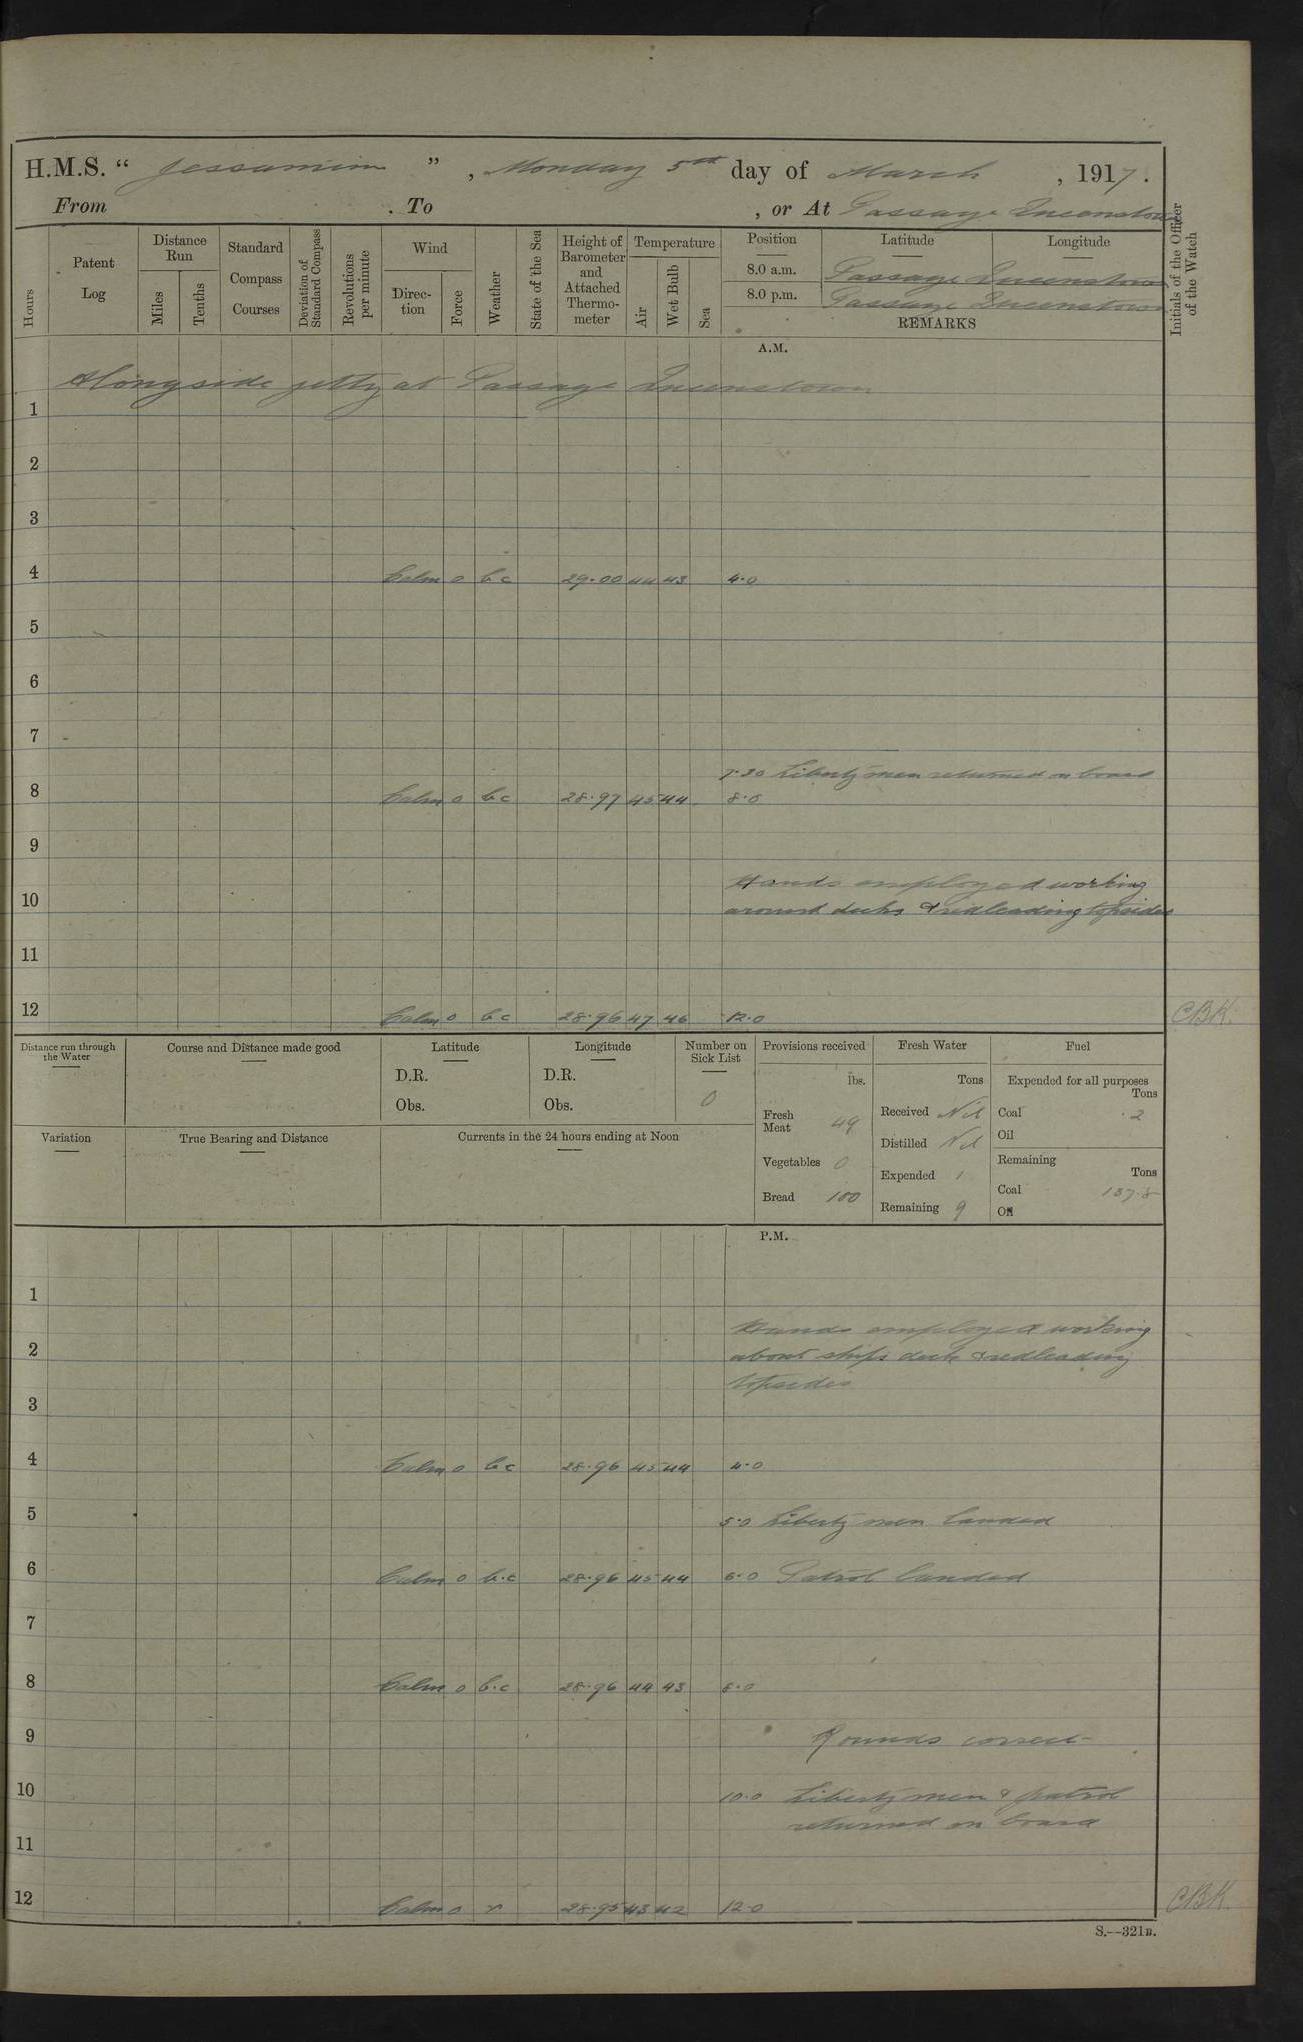 H.M.S. “ Jessamine ” , Monday 5th day of March , 1917.
From . To , or At Passage Queenstown
Hours
Patent Log
Distance Run
Miles
Tenths
Standard Compass Courses
Deviation of Standard Compass
Revolutions per minute
Wind
Direc-tion
Force
Weather
State of the Sea
Height of Barometer and Attached Thermo-meter
Temperature
Air
Wet Bulb
Sea
Position Latitude Longitude
8.0 a.m. Passage Queenstown
8.0 p.m. Passage Queenstown
REMARKS
Initials of the Officer of the Watch
A.M.
Alongside jetty at Passage Queenstown
1
2
3
4 Calm 0 bc 29.00 44 43 4.0
5
6
7
7.30 Liberty men returned on board
8 Calm 0 bc 28.97 45 44 8.0
9
Hands employed working
10 around decks & redleading topsides
11
12 Calm 0 bc 28.96 47 46 12.0 CBK.
Distance run through the Water
Course and Distance made good
Latitude
D.R.
Obs.
Longitude
D.R.
Obs.
Number on Sick List
0
Variation
True Bearing and Distance
Currents in the 24 hours ending at Noon
Provisions received
lbs.
Fresh Meat 49
Vegetables 0
Bread 100
Fresh Water
Tons
Received Nil
Distilled Nil
Expended 1
Remaining 9
Fuel
Expended for all purposes
Tons
Coal .2
Oil
Remaining
Tons
Coal 137.8
Oil
P.M.
1
Hands employed working
2 about ships deck & redleading
topsides
3
4 Calm 0 bc 28.96 45 44 4.0
5 5.0 Liberty men landed
6 Calm 0 b.c 28.96 45 44 6.0 Patrol landed
7
8 Calm 0 b.c 28.96 44 43 8.0
9 Rounds correct
10 10.0 Liberty men & patrol
returned on board
11
12 Calm 0 r 28.95 43 42 12.0 CBK.
S.--321B.